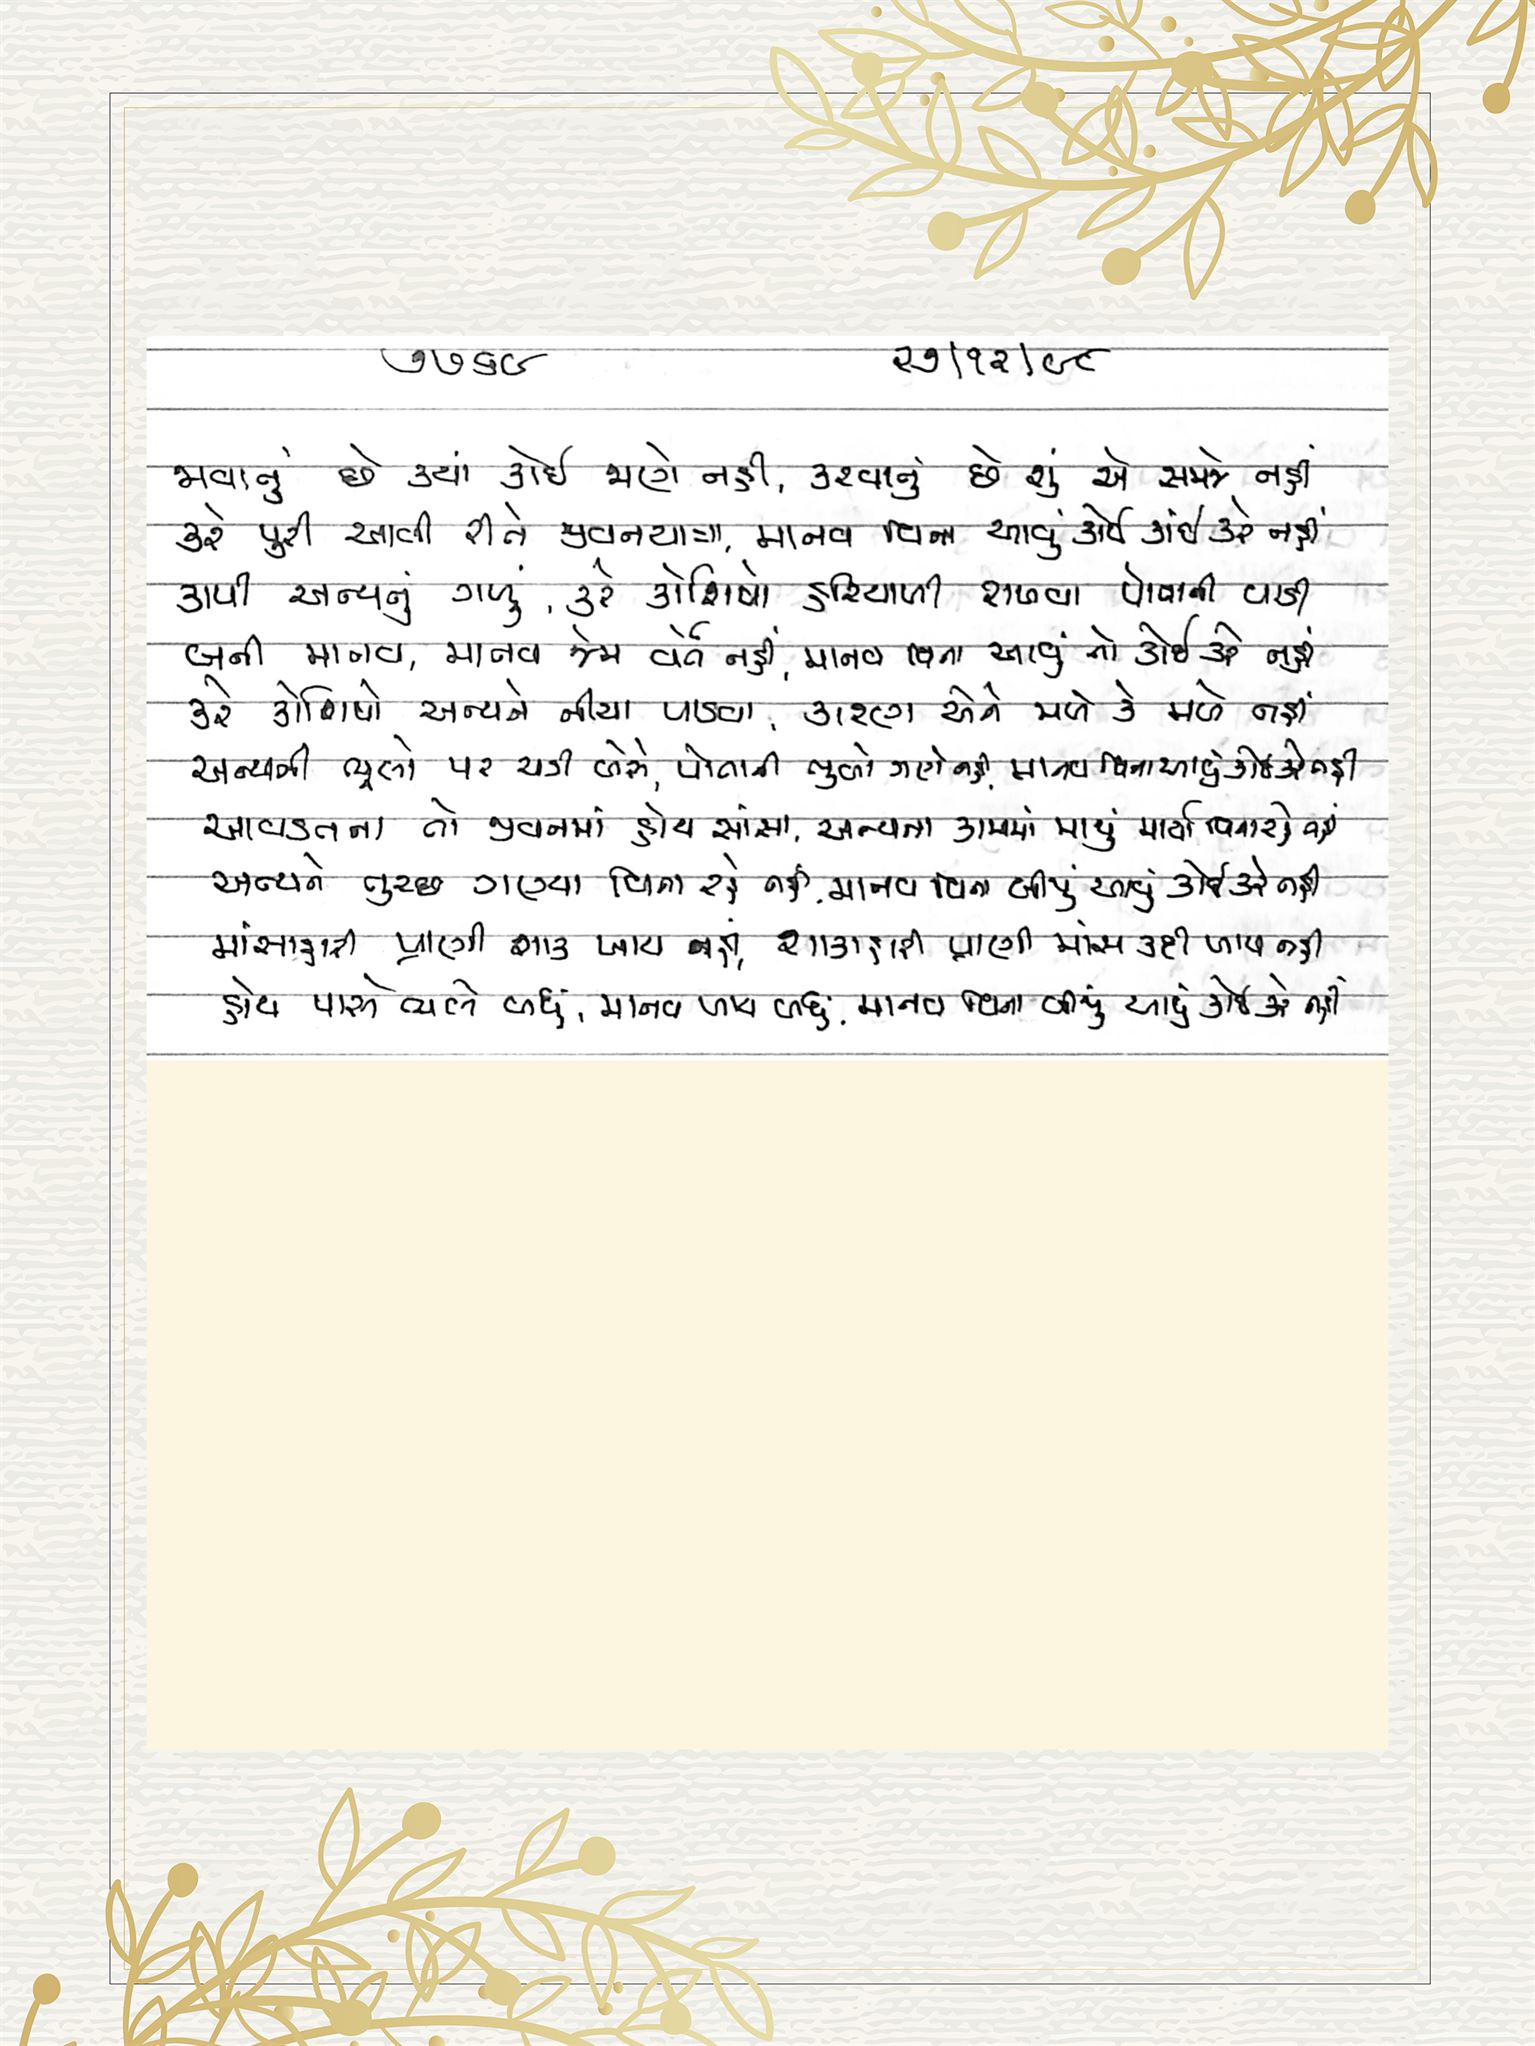 ૭૭૬૯ ૨૭/૧૨/૯૮
જાવાનું છે ક્યાં કોઈ જાણે નહીં, કરવાનું છે શું એ સમજે નહીં
કરે પુરી આવી રીતે જીવનયાત્રા, માનવ વિના આવું કોઈ કાંઈ કરે નહીં
કાપી અન્યનું ગળું, કરે કોશિષો હરિયાળી રાખવા પોતાની વાડી
બની માનવ, માનવ જેમ વર્તે નહીં, માનવ વિના આવું તો કોઈ કરે નહીં
કરે કોશિષો અન્યને નીચા પાડવા, કારણ એને મળે કે મળે નહીં
અન્યની ભૂલો પર ચડી બેસે, પોતાની ભુલો ગણે નહીં, માનવ વિના આવું કોઈ કરે નહીં
આવડતના તો જીવનમાં હોય સાંસા, અન્યના કામમાં માથું માર્યા વિના રહે નહીં
અન્યને તુચ્છ ગણ્યા વિના રહે નહીં, માનવ વિના બીજું આવું કોઈ કરે નહીં
માંસાહારી પ્રાણી શાક ખાય નહીં, શાકાહારી પ્રાણી માંસ કદી ખાય નહીં
હોય પાસે ભલે બધું, માનવ ખાય બધું, માનવ વિના બીજું આવું કોઈ કરે નહીં